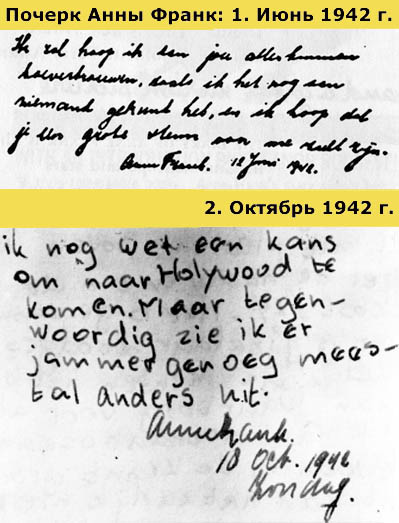 Почерк Анны Франк: 1. Июнь 1942 г.
Ik zal hoop ik aan jou alles kunnen
toevertrouwen, zoals ik het nog aan
niemand gekund heb, en ik hoop dat
je een grote steun van me zult zijn.
Anne Frank. 12 Juni 1942.
2. Октябрь 1942 г.
ik nog wel een kans
om naar Holywood te
komen. Maar tegen-
woordig zie ik er
jammer genoeg mees-
tal anders uit.
Annefrank.
18 Oct. 1942
Zondag.